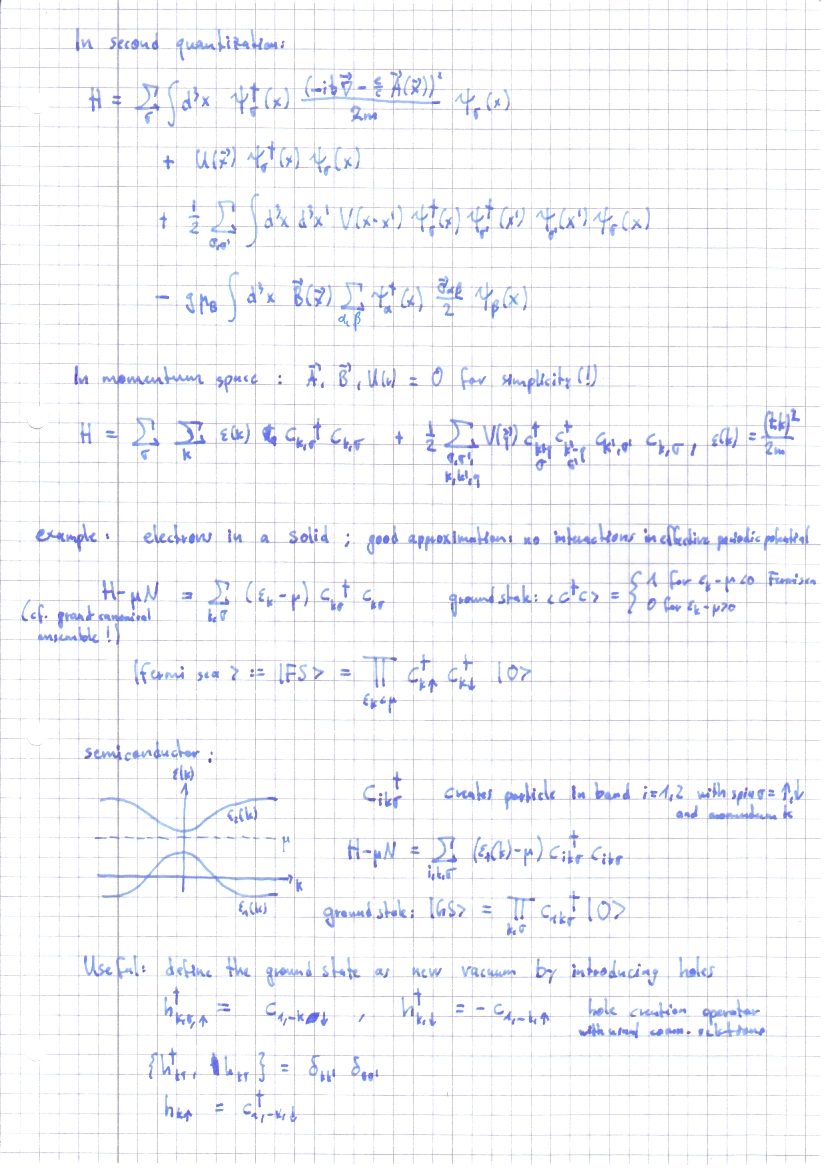 In second quantization:
H = ∑_σ ∫ d³x ψ_σ†(x) (-iħ∇⃗ - e/c A⃗(x⃗))² / 2m ψ_σ(x)
+ U(x⃗) ψ_σ†(x) ψ_σ(x)
+ 1/2 ∑_{σ,σ'} ∫ d³x d³x' V(x-x') ψ_σ†(x) ψ_σ'†(x') ψ_σ'(x') ψ_σ(x)
- gμ_B ∫ d³x B⃗(x⃗) ∑_{α,β} ψ_α†(x) σ⃗_αβ/2 ψ_β(x)
In momentum space : A⃗, B⃗, U(x) = 0 for simplicity (!)
H = ∑_σ ∑_k ε(k) c_{k,σ}† c_{k,σ} + 1/2 ∑_{σ,σ', k,k',q} V(q⃗) c†_{k+q σ} c†_{k'-q σ'} c_{k',σ'} c_{k,σ} , ε(k) = (ħk)²/2m
example: electrons in a solid ; good approximation: no interactions in effective periodic potential
H-μN = ∑_{k,σ} (ε_k-μ) c_{kσ}† c_{kσ} ground state: <c†c> = { 1 for ε_k-μ<0 Fermi sea
0 for ε_k-μ>0
(cf. grand canonical
ensemble!)
|fermi sea> := |FS> = ∏_{ε_k<μ} c†_{k↑} c†_{k↓} |0>
semiconductor:
ε(k)
ε₂(k)
μ
k
ε₁(k)
c_{ikσ}† creates particle in band i=1,2 with spin σ=↑,↓
and momentum k
H-μN = ∑_{i,k,σ} (ε_i(k)-μ) c_{ikσ}† c_{ikσ}
ground state: |GS> = ∏_{k,σ} c_{1kσ}† |0>
Useful: define the ground state as new vacuum by introducing holes
h†_{k,↑} = c_{1,-k↓} , h†_{k,↓} = - c_{1,-k,↑} hole creation operator
with usual comm. relations
{h†_{kσ}, h_{kσ}} = δ_{kk'} δ_{σσ'}
h_{k↑} = c†_{1,-k,↓}